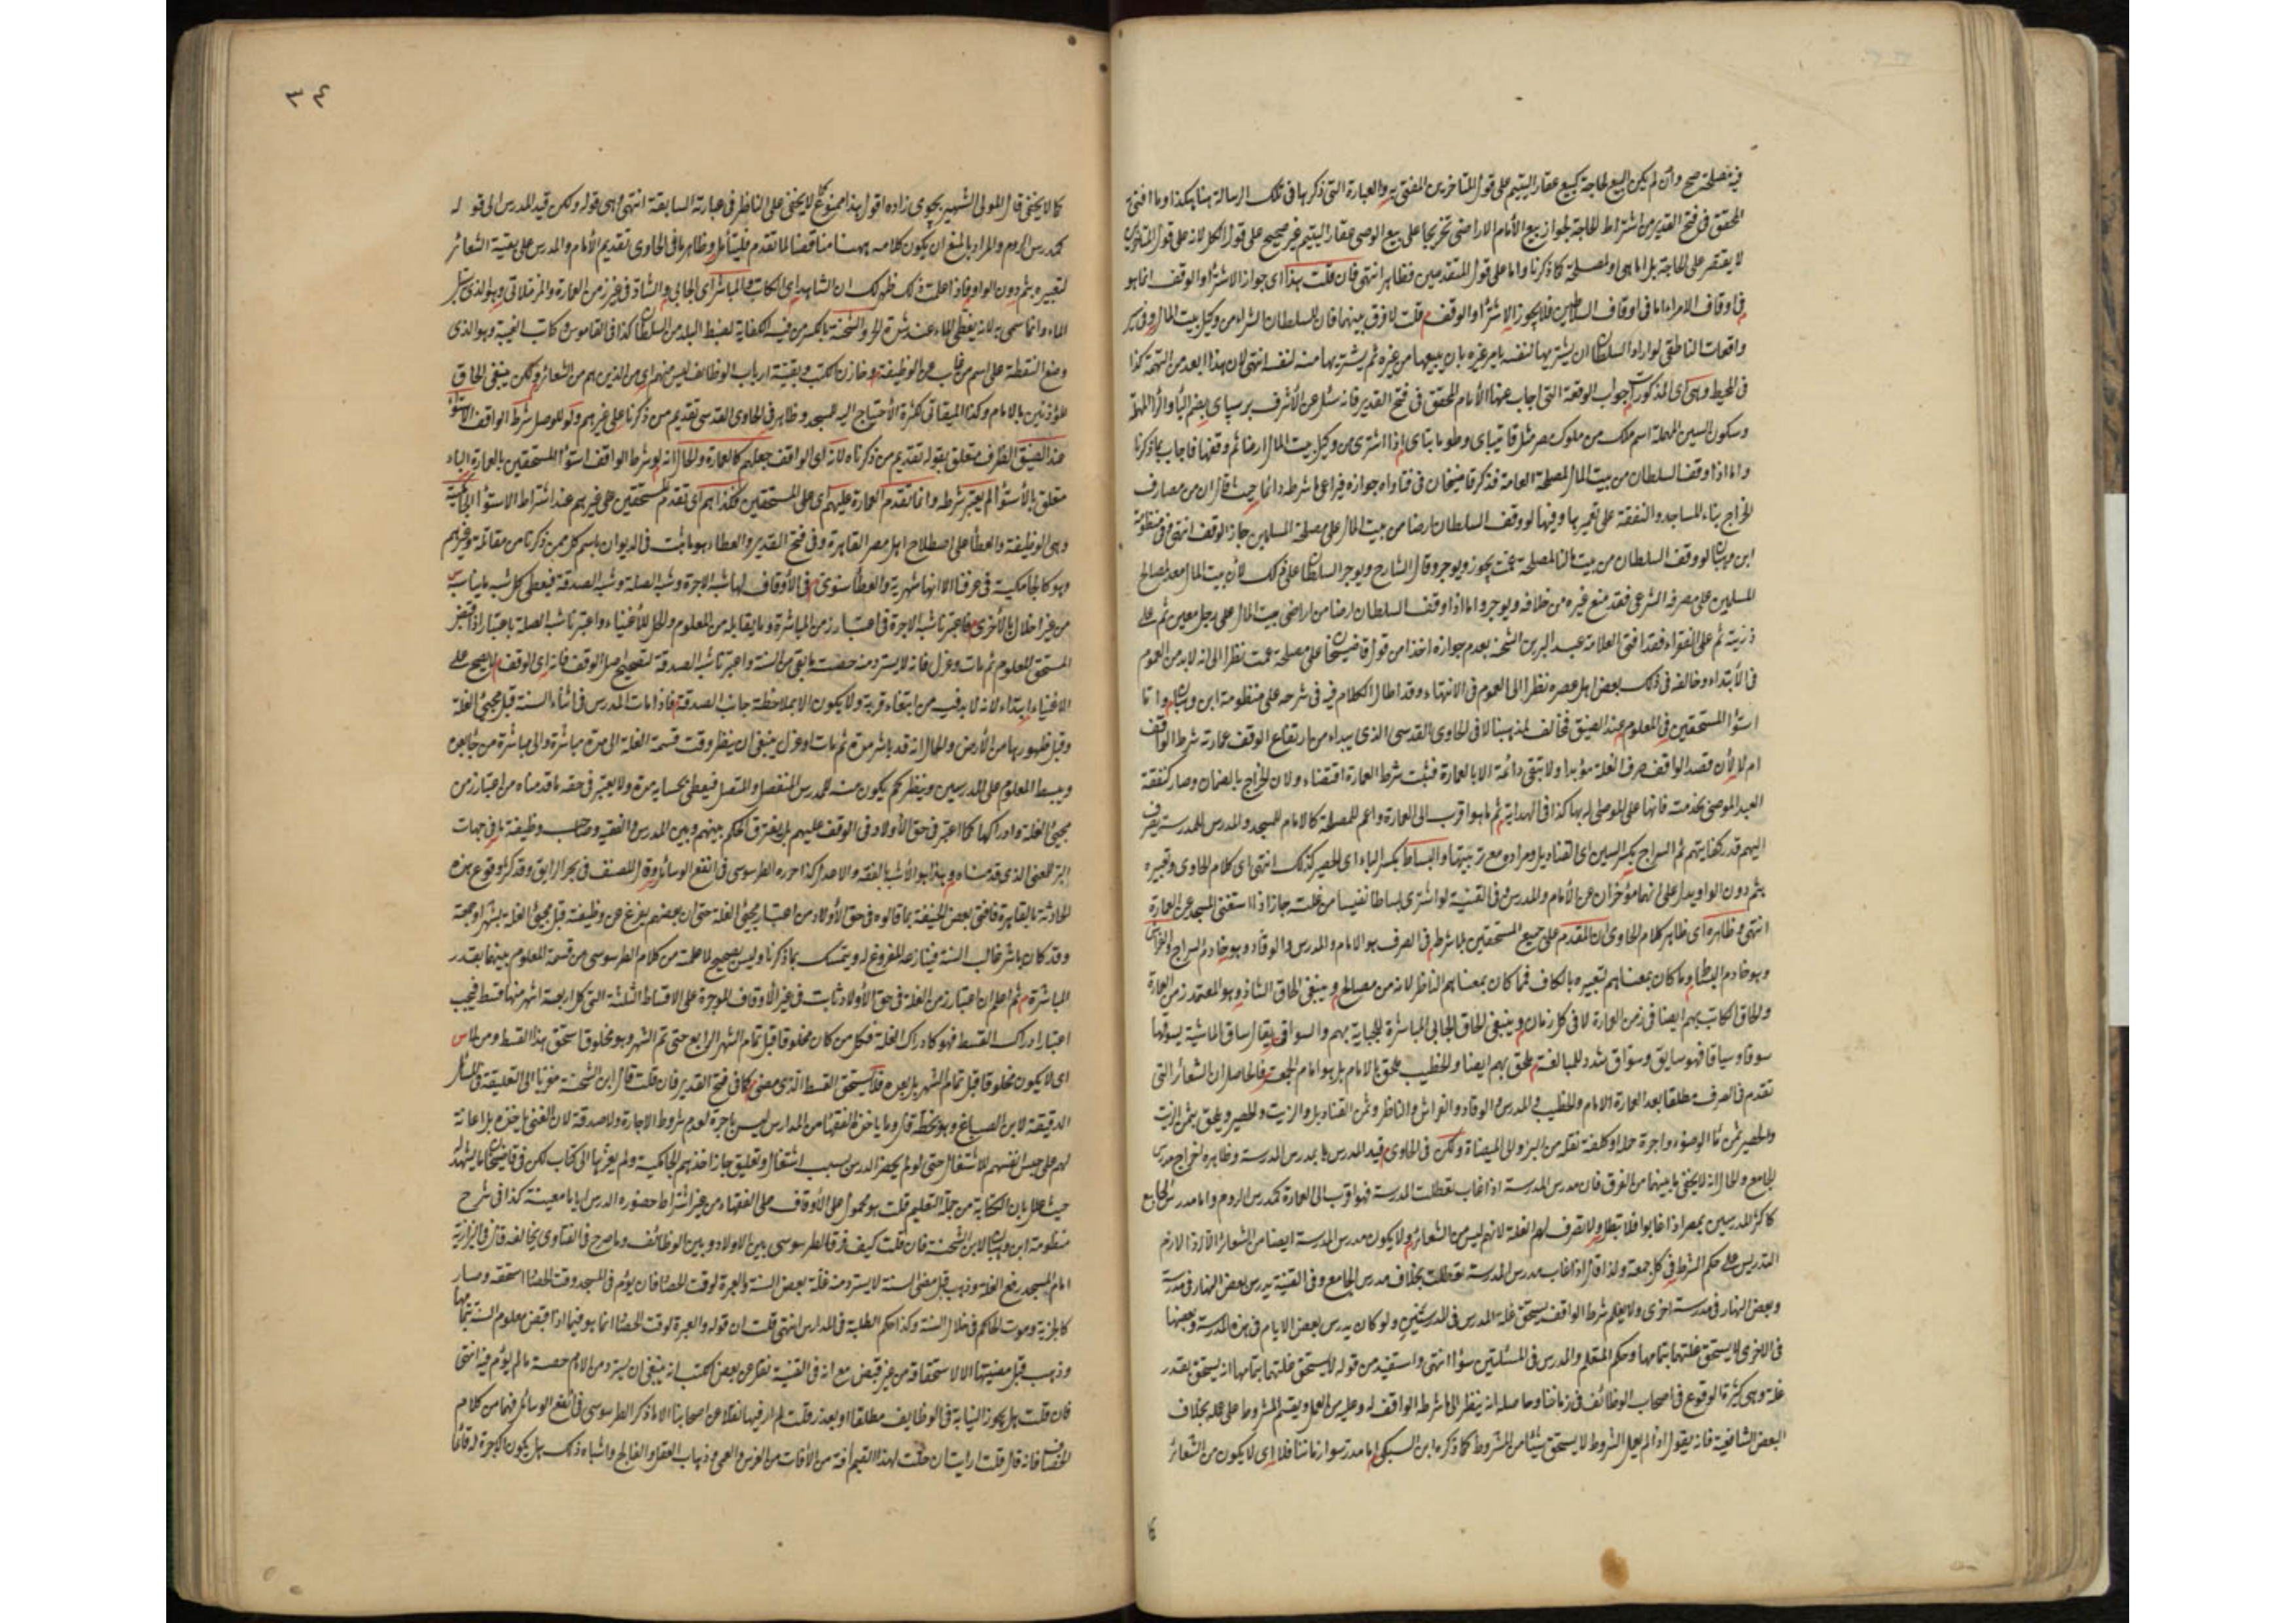 فيه مصلحة صح وان لم يكن البيع لحاجة كبيع عقار اليتيم على قول المتاخرين المفتى به والعبارة التى ذكرها فى تلك الرسالة هنا هكذا وما افتى به
المحقق فى فتح القدير من اشتراط الحاجة لجواز بيع الأمام الاراضى تخريجا على بيع الوصى عقار اليتيم غير صحيح على قول الكل لانه على قول المتاخرين
لا يقتصر على الحاجة بل اما هى او لمصلحة كما ذكرنا واما على قول المتقدمين فظاهر انتهى فان قلت هذا اى جواز الاشتراء والوقف انما هو
فى اوقاف الامراء اما فى اوقاف السلاطين فلا يجوز الاشتراء والوقف قلت لا فرق بينهما فان للسلطان الشراء من وكيل بيت المال وفى
واقعات الناطفى لو اراد السلطان ان يشتريها لنفسه يامر غيره بان يبيعها من غيره ثم يشتريها منه لنفسه انتهى لان هذا ابعد من التهمة كذا
فى المحيط وهى اى المذكورات جواب الوقعة التى اجاب عنها الأمام المحقق فى فتح القدير فانه سئل عن الأشرف برسباى بفتح الباء والراء المهملة
وسكون السين المهملة اسم ملك من ملوك مصر مثل قايتباى وطومان باى اذا اشترى من وكيل بيت المال ارضا ثم وقفها فاجاب بما ذكرنا
واما اذا وقف السلطان من بيت المال لمصلحة العامة فذكر قاضيخان فى فتاواه جوازه فيراعى ما شرطه دائما حيث قال ان من مصارف
الخراج بناء المساجد والنفقة على تعميرها وفيها لو وقف السلطان ارضا من بيت المال على مصلحة المسلمين جاز الوقف انتهى وفى منظومة
ابن وهبان لو وقف السلطان من بيت مالنا لمصلحة عمت يجوز ويوجر وقال الشارح ويوجر السلطان على ذلك لأن بيت المال معد لمصالح
المسلمين على مصرفه الشرعى فقد منع غيره من خلافه ويوجر واما اذا وقف السلطان ارضا من اراضى بيت المال على رجل معين ثم على
ذريته ثم على الفقراء فقد افتى العلامة عبد البر بن الشحنة بعدم جوازه اخذا من قول قاضيخان على مصلحة عمت نظرا الى انه لابد من العموم
فى الأبتداء وخالفه فى ذلك بعض اهل عصره نظرا الى العموم فى الانتهاء وقد اطال الكلام فيه فى شرحه على منظومة ابن وهبان واما
استواء المستحقين فى المعلوم عند الضيق فخالف لمذهبنا لما فى الحاوى القدسى الذى يبداء من ارتفاع الوقف عمارته شرط الواقف
ام لا لأن قصد الواقف صرف الغلة مؤبدا ولا تبقى دائمة الا بالعمارة فيثبت شرط العمارة اقتضاء ولان الخراج بالضمان وصار كنفقة
العبد الموصى بخدمته فانها على الموصى له بها كذا فى الهداية ثم ما هو اقرب الى العمارة واعم للمصلحة كالامام للمسجد والمدرس للمدرسة يصرف
اليهم قدر كفايتهم ثم السراج بكسر السين اى القناديل ومراده مع زيتها والبساط بكسر الباء اى الحصر كذلك انتهى اى كلام الحاوى وتعبيره
بثم دون الواو يدل على انهما مؤخران عن الأمام والمدرس وفى القنية لو اشترى بساطا نفيسا من غلته جاز اذا استغنى المسجد عن العمارة
انتهى وظاهره اى ظاهر كلام الحاوى ان المقدم على جميع المستحقين بلا شرط فى الصرف هو الامام والمدرس والوقاد وهو خادم السراج والفراش
وهو خادم البسط وما كان بمعناهم لتعبيره بالكاف فما كان بمعناهم الناظر لانه من مصالح وينبغى الحاق الشاد وهو المعتمد زمن العمارة
والحاق الكاتب بهم ايضا فى زمن العمارة لا فى كل زمان وينبغى الحاق الجابى المباشرة للجباية بهم والسواق يقال ساق الماشية يسوقها
سوقا وسياقا فهو سايق وسواق شدد للمبالغة ملحق بهم ايضا والخطيب ملحق بالامام بل هو امام الجمعة فالحاصل ان الشعائر التى
تقدم فى الصرف مطلقا بعد العمارة الامام والخطيب والمدرس والوقاد والفراش والناظر وثمن القناديل والزيت والحصير ويلحق بثمن الزيت
والحصير ثمن ماء الوضوء واجرة حمله او كلفة نقله من البئر الى الميضاة ولكن فى الحاوى قيد المدرس بمدرس المدرسة وظاهره اخراج مدرس
الجامع والحال انه لا يخفى ما بينهما من الفرق فان مدرس المدرسة اذا غاب تعطلت المدرسة فهو اقرب الى العمارة كمدرس الروم واما مدرس الجامع
كاكثر المدرسين بمصر اذا غابوا فلا تبطل ولا تصرف لهم الغلة لانهم ليس من الشعائر ولا يكون مدرس المدرسة ايضا من الشعائر الا اذا لازم
التدريس على حكم الشرط فى كل جمعة ولذا قال اذا غاب مدرس المدرسة تعطلت بخلاف مدرس الجامع وفى القنية يدرس بعض النهار فى مدرسة
وبعض النهار فى مدرسة اخرى ولا يعلم شرط الواقف يستحق غلة المدرس فى المدرستين ولو كان يدرس بعض الايام فى هذه المدرسة وبعضها
فى الاخرى لا يستحق غلتهما بتمامها وحكم المتعلم والمدرس فى المسئلتين سواء انتهى واستفيد من قوله لا يستحق غلتهما بتمامها انه يستحق بقدر
عمله وهى كثيرة الوقوع فى اصحاب الوظائف فى زماننا وحاصله انه ينظر الى ما شرطه الواقف له وعليه من العمل ويقسم المشروط على عمله بخلاف
البعض الشافعية فانه يقول اذا لم يعمل المشروط لا يستحق شيئا من المشروط كما ذكره ابن السبكى اما مدرسوا زماننا فلا اى لا يكون من الشعائر
كا
٣٤
كما لا يخفى قال المولى الشهير بجوى زاده اقول هذا ممنوع كما لا يخفى على الناظر فى عبارته السابقة انتهى وهى قوله ولكن قيد المدرس الى قوله
كمدرس الروم والمراد بالمنع ان يكون كلامه ههنا مناقضا لما تقدم فليتأمل وظاهر ما فى الحاوى تقديم الأمام والمدرس على بقية الشعائر
لتعبيره بثم دون الواو فاذا علمت ذلك ظهر لك ان الشاهد اى الكاتب والمباشر اى الجابى والشاد فى غير زمن العمارة والمزملاتى وهو الذى
الماء وانما سمى به لانه يغطى الماء عند شدة الحر والشحنة بالكسر من فيه الكفاية لضبط البلد من السلطان كذا فى القاموس وكاتب الغيبة وهو الذى
وضع النقطة على اسم من غاب عن الوظيفة وخازن الكتب وبقية ارباب الوظائف ليس منهم اى من الذين هم من الشعائر ولكن ينبغى الحاق
المؤذنين بالامام وكذا الميقاتى لكثرة الأحتياج اليه للمسجد وظاهر فى الحاوى القدسى تقديم من ذكرنا على غيرهم ولو للوصل شرط الواقف الاستواء
عند الضيق الظرف متعلق بقوله تقديم من ذكرناه لانه اى الواقف جعلهم كالعمارة والحال انه لو شرط الواقف استواء المستحقين بالعمارة الباء
متعلق بالأستواء لم يعتبر شرطه وانما تقدم العمارة عليهم اى على المستحقين فكذا هم اى تقدم المستحقين على غيرهم عند اشتراط الاستواء الجامكية
وهى الوظيفة والعطاء على اصطلاح اهل مصر القاهرة وفى فتح القدير والعطاء هو ما يثبت فى الديوان باسم كل ممن ذكرنا من مقاتلة وغيرهم
وهو كالجامكية فى عرفنا الا انها شهرية والعطاء سنوى فى الأوقاف لها شبه الاجرة وشبه الصلة وشبه الصدقة فيعطى كل شبه ما يناسبه
من غير اخلال بالأخرى فاعتبرنا شبه الاجرة فى اعتبار زمن المباشرة وما يقابله من المعلوم والحل للأغنياء واعتبرنا شبه الصلة باعتبار اذا قبض
المستحق المعلوم ثم مات وعزل فانه لا يسترد منه حصة ما بقى من السنة واعتبرنا شبه الصدقة لتصحيح اصل الوقف فانه اى الوقف لا يصح على
الاغنياء ابتداء لأنه لابد فيه من ابتغاء قربة ولا يكون الا بملاحظة جانب الصدقة فاذا مات المدرس فى اثناء السنة قبل مجيئ الغلة
وقبل ظهورها من الأرض والحال انه قد باشر مدة ثم مات او عزل ينبغى ان ينظر وقت قسمة الغلة الى مدة مباشرة والى مباشرة من جاء بعده
ويبسط المعلوم على المدرسين وينظر كم يكون منه للمدرس المنفصل والمتصل فيعطى بحسابه مدة ولا يعتبر فى حقه ما قدمناه من اعتبار زمن
مجيئ الغلة وادراكها كما اعتبر فى حق الأولاد فى الوقف عليهم بل يفترق الحكم بينهم وبين المدرس والفقيه وصاحب وظيفة ما فى جهات
البر للمعنى الذى قدمناه وهذا هو الأشبه بالفقه والاعدل كذا حرره الطرسوسى فى انفع الوسائل وقال المصنف فى بحر الرايق وقد كثر وقوع هذه
الحادثة بالقاهرة فافتى بعض الحنفية بما قالوه فى حق الأولاد من اعتبار مجيئ الغلة حتى ان بعضهم يفرغ عن وظيفته قبل مجيئ الغلة بشهر او جمعة
وقد كان باشر غالب السنة فينازعه المفروغ له ويتمسك بما ذكرنا وليس بصحيح لما علمت من كلام الطرسوسى من قسمة المعلوم بينهما بقدر
المباشرة ثم اعلم ان اعتبار زمن الغلة فى حق الأولاد ثابت فى غير الأوقاف المؤجرة على الاقساط الثلثة التى كل اربعة اشهر منها قسط فيجب
اعتبار ادراك القسط فهو كادراك الغلة فكل من كان مخلوقا قبل تمام الشهر الرابع حتى تم الشهر وهو مخلوق استحق هذا القسط ومن لا
اى لا يكون مخلوقا قبل تمام الشهر بل بعده فلا يستحق القسط الذى مضى كما فى فتح القدير فان قلت قال ابن الشحنة معزيا الى التعليقة فى المسائل
الدقيقة لابن الصباغ وهو بخطه قال وما ياخذه الفقهاء من المدارس ليس باجرة لعدم شروط الاجارة ولا صدقة لان الغنى ياخذه بل اعانة
لهم على حبس انفسهم للاشتغال حتى لو لم يحضر الدرس بسبب اشتغال وتعليق جاز اخذهم الجامكية ولم يعزها الى كتاب لكن فى قاضيخان ما يشهد له
حيث علل بان الكتابة من جملة التعليم قلت هو محمول على الأوقاف على الفقهاء من غير اشتراط حضوره الدرس اياما معينة كذا فى شرح
منظومة ابن وهبان لابن الشحنة فان قلت كيف فرق الطرسوسى بين الاولاد وبين الوظائف وما صرح فى الفتاوى يخالفه قال فى البزازية
امام المسجد رفع الغلة وذهب قبل مضى السنة لا يسترد منه غلة بعض السنة والعبرة لوقت الحصاد فان يؤم فى المسجد وقت الحصاد استحقه وصار
كالجزية وموت الحاكم فى خلال السنة وكذا حكم الطلبة فى المدارس انتهى قلت ان قوله والعبرة لوقت الحصاد انما هو فيما اذا قبض معلوم السنة بتمامها
وذهب قبل مضيها الا لاستحقاقه من غير قبض مع انه فى القنية نقل عن بعض الكتب انه ينبغى ان يسترد من الامام حصة ما لم يؤم فيه انتهى
فان قلت هل يجوز النيابة فى الوظايف مطلقا او بعذر قلت لم ار فيها نقلا عن اصحابنا الا ما ذكر الطرسوسى فى انفع الوسائل فهما من كلام
الخصاف فانه قال قلت ارايت ان حلت بهذا القيم افة من الأفات من الخرس والعمى وذهاب العقل والفالج واشباه ذلك هل يكون الاجرة له قائما